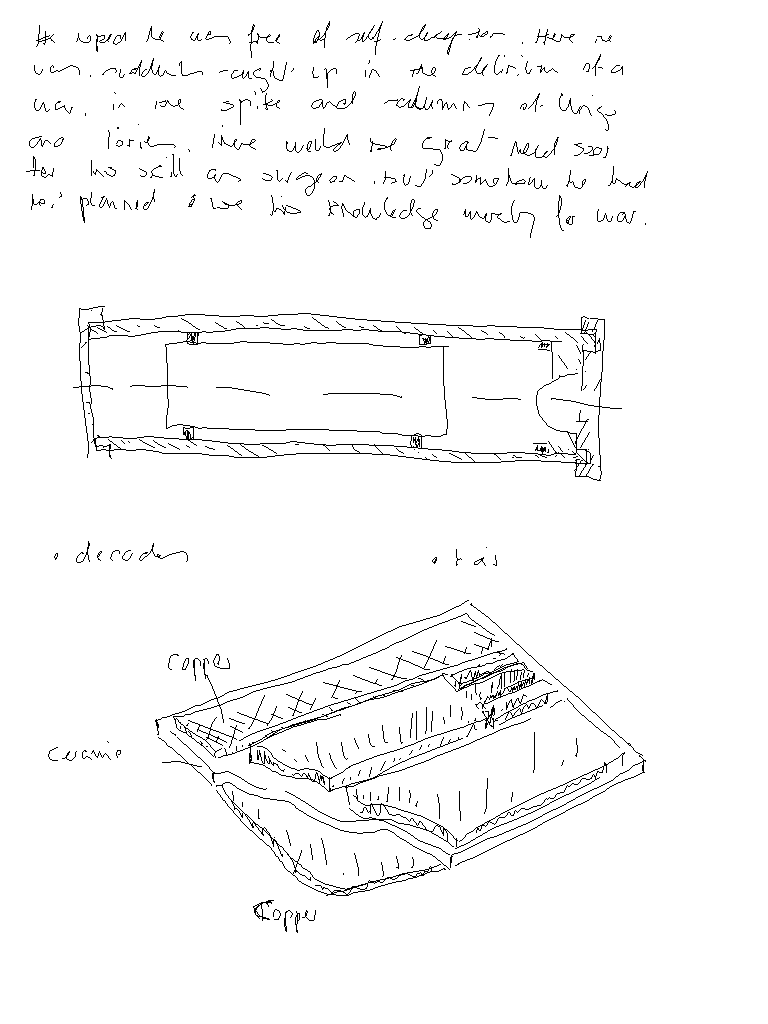 He hoped he was free of self-deception. Here he
was, suddenly caught up in the delirium of a
war, in the spite and calumny of Whigs
and Tories. There would be great need soon
for his skill as surgeon, but somehow he had
not planned to use his knowledge merely for war.
• decades
• tais
Copper
Ceramic
Copper